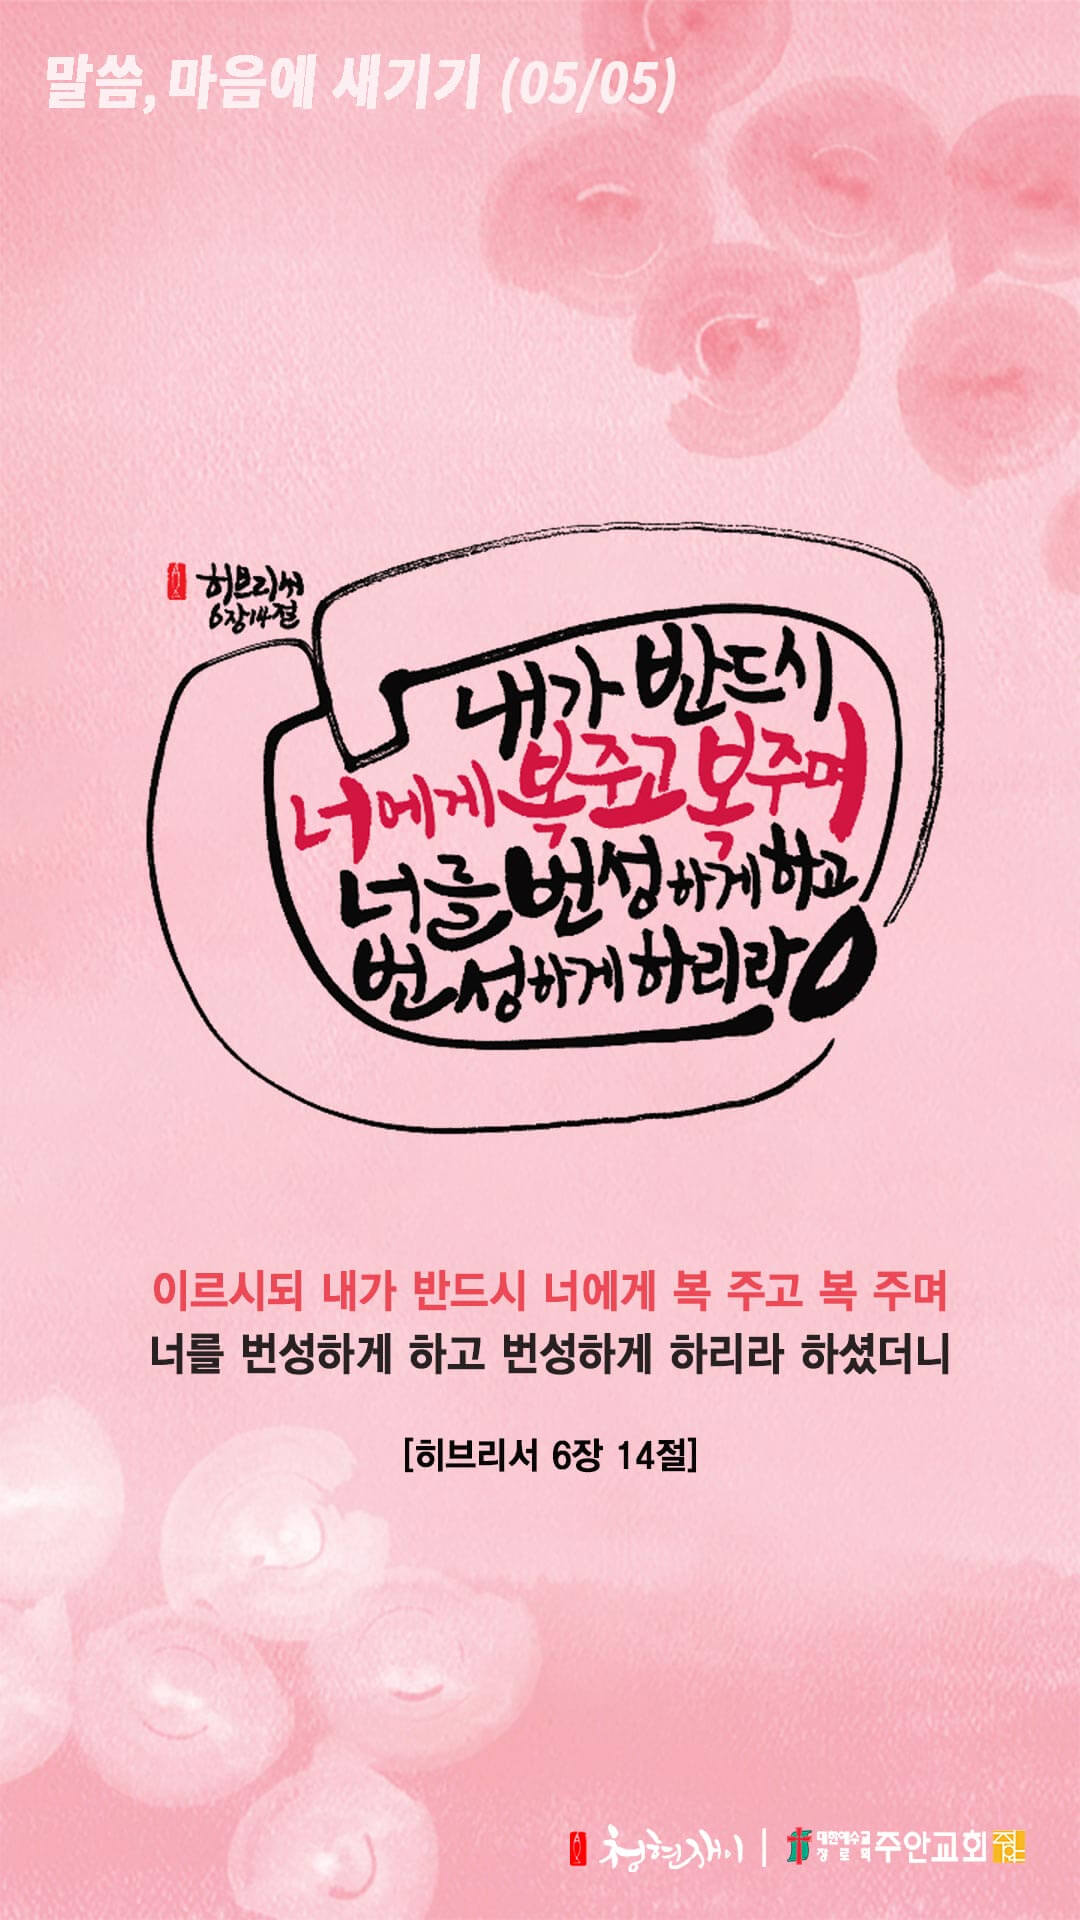 말씀, 마음에 새기기 (05/05)
히브리서
6장14절
내가 반드시
너에게 복주고 복주며
너를 번성하게 하고
번성하게 하리라
이르시되 내가 반드시 너에게 복 주고 복 주며
너를 번성하게 하고 번성하게 하리라 하셨더니
[히브리서 6장 14절]
청현재이 | 대한예수교장로회 주안교회